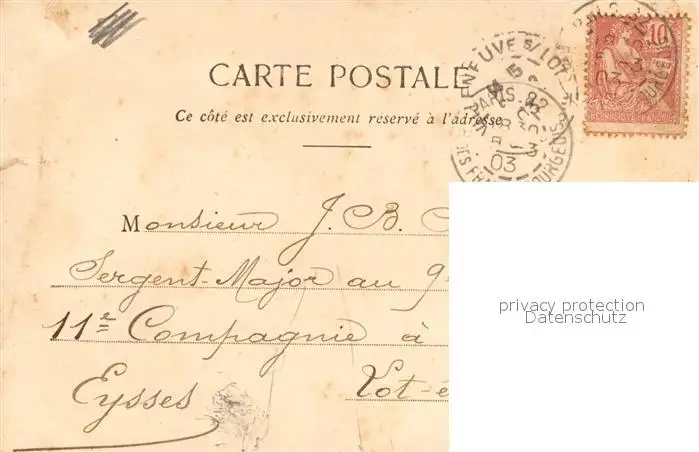 CARTE POSTALE
Ce côté est exclusivement reservé à l'adresse
VILLENEUVE S/LOT
PARIS. 22
03
10
REPUBLIQUE FRANÇAISE
Monsieur J. B.
Sergent-Major au 9e
11e Compagnie à
Eysses Lot-é
privacy protection
Datenschutz